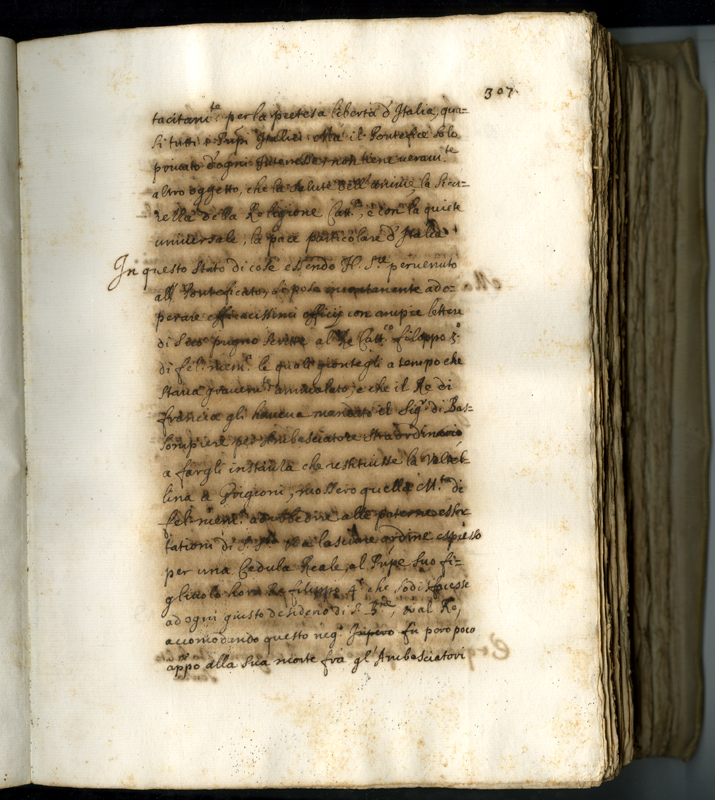 307
tacitam.te per la pretesa libertà d'Italia, qua-
si tutti i Prnpi Italiei. Ma il Pontefice solo
privato d'ogni Interesse, non tiene veram.te
altro oggetto, che la salute dell'anime, la Sicu-
rella della Religione Catt.ca, e con la quiete
universale, la pace particolare d'Italia
In questo stato di cose essendo N. S.re pervenuto
all Ponteficato, se posa adop-
perare efficacissimi officij con ampie lettere
di Suo pugno scritte al Re Catt.co filippo 3.o
di fel: mem.a le quali giontegli a tempo che
stava gravem.te ammalato, e che il Re di
francia gli haveva mandato il Sig.r di Bas-
sompiere per Ambasciatore straordinario
a fargli instanza che restituisse la Valtel-
lina a Grigioni, mossero quella M.tà di
fel: mem.a ad ubbedire alle paterne essor
tationi di S. S.tà et a lasciare ordine espresso
per una Cedula Reale, al Prnpe suo fi-
gliuolo hora Re filippo 4.o che sodisfacesse
ad ogni giusto desiderio di S. B.ne, et al Re,
accomodando questo neg.o fu però poco
appo alla sua morte fra gl'Ambasciatori